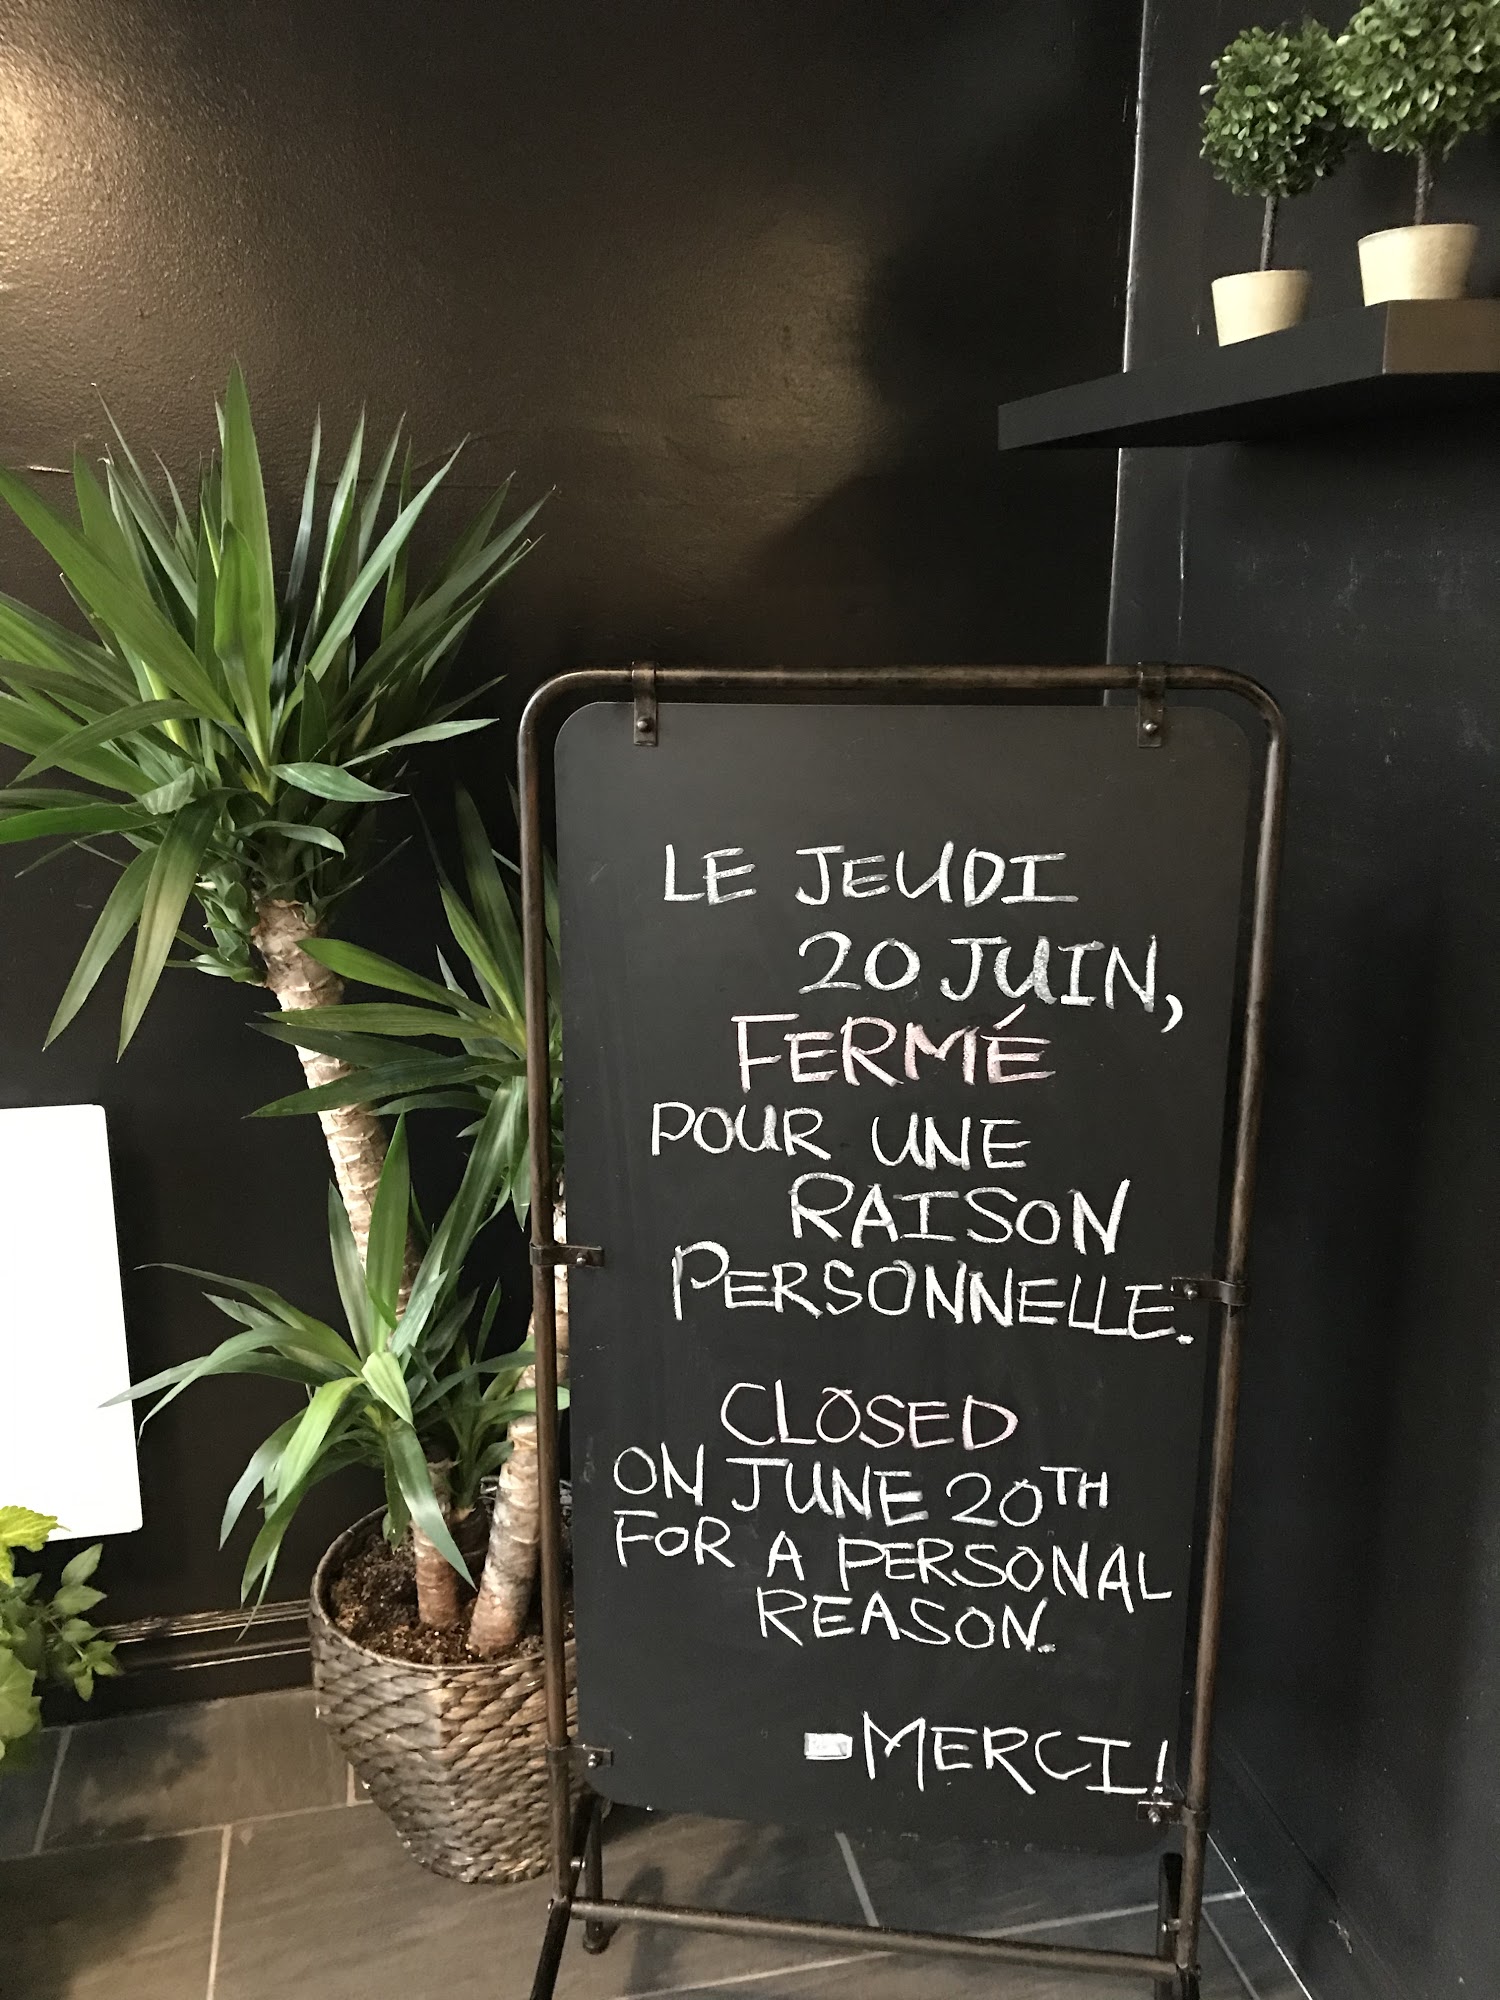 LE JEUDI
20 JUIN,
FERMÉ
POUR UNE
RAISON
PERSONNELLE.
CLOSED
ON JUNE 20TH
FOR A PERSONAL
REASON.
-MERCI!